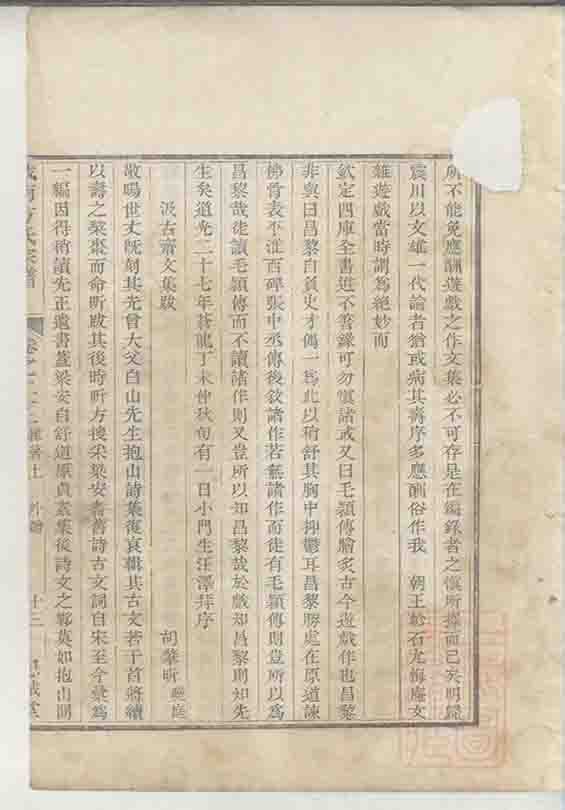 所不能免應酬遊戲之作文集必不可存是在編錄者之慎所擇而已矣明歸
震川以文雄一代論者猶或病其壽序多應酬俗作我　朝王 石尤悔庵文
雜遊戲當時謂為絕妙而
欽定四庫全書進不著錄可勿慎諸或又曰毛頴傳膾炙古今遊戲作也昌黎
非與曰昌黎自負史才偶一為此以稍舒其胸中抑鬱耳昌黎勝處在原道諫
佛骨表不淮西碑張中丞傳後敘諸作若無諸作而徒有毛頴傳則豈所以為
昌黎哉徒讀毛頴傳而不讀諸作則又豈所以知昌黎哉於戲知昌黎則知先
生矣道光二十七年蒼龍丁未仲秋旬有一日小門生汪澤拜序
汲古齋文集跋　胡肇昕 庭
敬暘世丈既刻其先曾大父白山先生抱山詩集復裒輯其古文若干首將續
以壽之棃棗而命昕跋其後時昕方搜采梁安耆舊詩古文詞自宋至今彙為
一編因得稍讀先正遺書蓋梁安自舒道原貞素集後詩文之 莫如抱山開
城南方氏宗譜　卷之　雜著上　外譜　十三